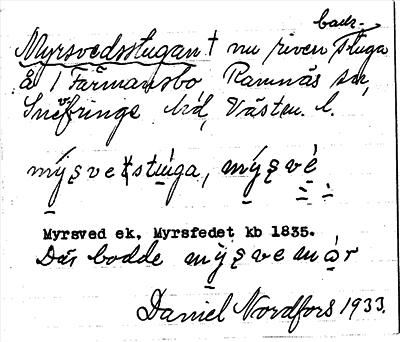 back-
Myrsvedsstugan † nu riven stuga
å 1 Färmansbo, Ramnäs sn,
Snefringe hd, Västm. l.
mýsvestúga, mýsvè
Myrsved ek. Myrsfedet kb 1835.
Där bodde mýsvemàr
Daniel Nordfors 1933.